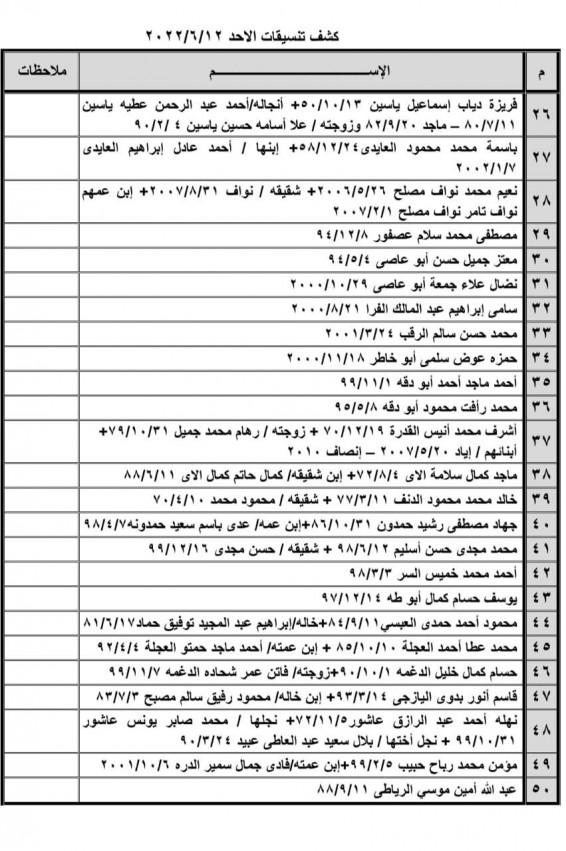 كشف تنسيقات الاحد ٢٠٢٢/٦/١٢
م الإســـــم ملاحظات
٢٦ فريزة دياب إسماعيل ياسين ٥٠/١٠/١٣+ أنجاله/أحمد عبد الرحمن عطيه ياسين
٨٠/٧/١١ – ماجد ٨٢/٩/٢٠ وزوجته / علا أسامه حسين ياسين ٤ /٩٠/٢
٢٧ باسمة محمد محمود العايدى٥٨/١٢/٢٤+ إبنها / أحمد عادل إبراهيم العايدى
٢٠٠٢/١/٧
٢٨ نعيم محمد نواف مصلح ٢٠٠٦/٥/٢٦+ شقيقه / نواف ٢٠٠٧/٨/٣١+ إبن عمهم
نواف تامر نواف مصلح ٢٠٠٧/٢/١
٢٩ مصطفى محمد سلام عصفور ٩٤/١٢/٨
٣٠ معتز جميل حسن أبو عاصى ٩٤/٥/٤
٣١ نضال علاء جمعة أبو عاصى ٢٠٠٠/١٠/٢٩
٣٢ سامى إبراهيم عبد المالك الفرا ٢٠٠٠/٨/٢١
٣٣ محمد حسن سالم الرقب ٢٠٠١/٣/٢٤
٣٤ حمزه عوض سلمى أبو خاطر ٢٠٠٠/١١/١٨
٣٥ أحمد ماجد أحمد أبو دقه ٩٩/١١/١
٣٦ محمد رأفت محمود أبو دقه ٩٥/٥/٨
٣٧ أشرف محمد أنيس القدرة ٧٠/١٢/١٩ + زوجته / رهام محمد جميل ٧٩/١٠/٣١+
أبنائهم / إياد ٢٠٠٧/٥/٢٠ – إنصاف ٢٠١٠
٣٨ ماجد كمال سلامة الاى ٧٢/٨/٤+ إبن شقيقه/ كمال حاتم كمال الاى ٨٨/٦/١١
٣٩ خالد محمد محمود الدنف ٧٧/٣/١١ + شقيقه / محمود محمد ٧٠/٤/١٠
٤٠ جهاد مصطفى رشيد حمدون ٨٦/١٠/٣١+إبن عمه/ عدى باسم سعيد حمدونه٩٨/٤/٧
٤١ محمد مجدى حسن أسليم ٩٨/٦/١٢ + شقيقه / حسن مجدى ٩٩/١٢/١٦
٤٢ أحمد محمد خميس السر ٩٨/٣/٣
٤٣ يوسف حسام كمال أبو طه ٩٧/١٢/١٤
٤٤ محمود أحمد حمدى العبسي٨٤/٩/١١+خاله/إبراهيم عبد المجيد توفيق حماد٨١/٦/١٧
٤٥ محمد عطا أحمد العجلة ٨٥/١٠/١٠ + إبن عمته/ أحمد ماجد حمتو العجلة ٩٢/٤/٤
٤٦ حسام كمال خليل الدغمه ٩٠/١٠/١+زوجته/ فاتن عمر شحاده الدغمه ٩٩/١١/٧
٤٧ قاسم أنور بدوى اليازجى ٩٣/٣/١٤+ إبن خاله/ محمود رفيق سالم مصبح ٨٣/٧/٣
٤٨ نهله أحمد عبد الرازق عاشور٧٢/١١/٥+ نجلها / محمد صابر يونس عاشور
٩٩/١٠/٣١ + نجل أختها / بلال سعيد عبد العاطى عبيد ٩٠/٣/٢٤
٤٩ مؤمن محمد رباح حبيب ٩٩/٢/٥+إبن عمته/فادى جمال سمير الدره ٢٠٠١/١٠/٦
٥٠ عبد الله أمين موسي الرياطى ٨٨/٩/١١